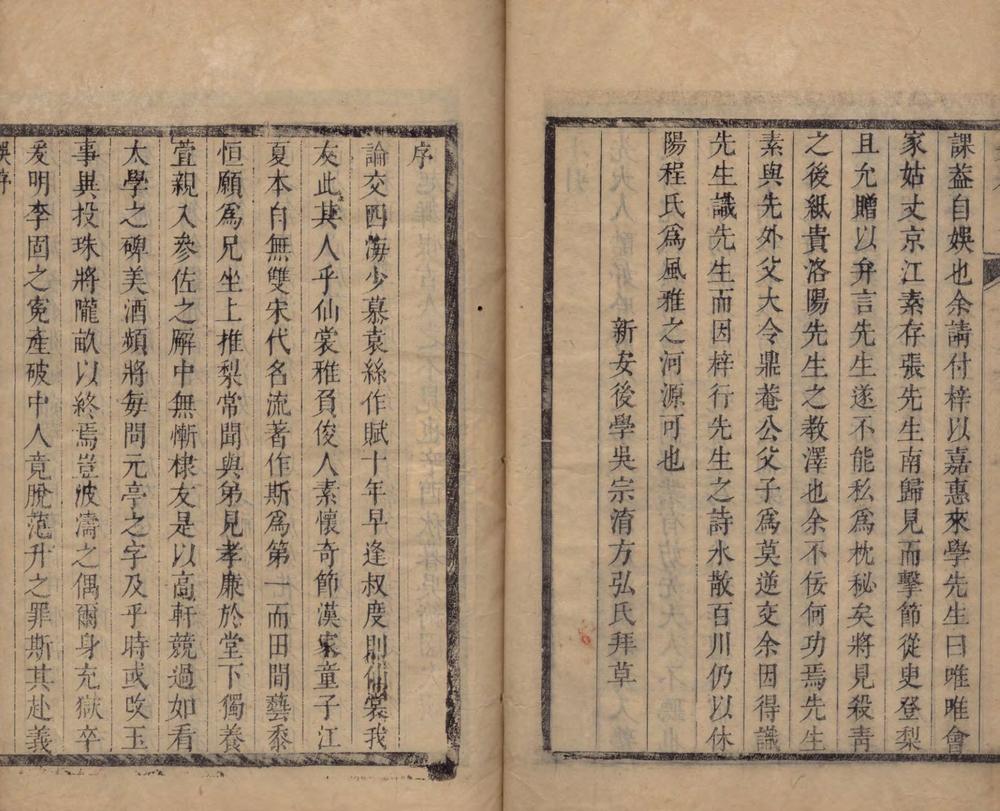 課葢自娛也余請付梓以嘉惠來學先生曰唯唯會
家姑丈京江素存張先生南歸見而擊節從臾登梨
且允贈以弁言先生遂不能私爲枕秘矣將見殺靑
之後紙貴洛陽先生之教澤也余不佞何功焉先生
素與先外父大令鼎菴公父子爲莫逆交余因得識
先生識先生而因梓行先生之詩水散百川仍以休
陽程氏爲風雅之河源可也
新安後學吳宗淯方弘氏拜草
序
論交四海少慕袁絲作賦十年早逢叔度則仙裳我
友此其人乎仙裳雅負俊人素懷奇節漢家童子江
夏本自無雙宋代名流著作斯爲第一而田間藝黍
恒願爲兄坐上推梨常聞與弟見孝廉於堂下獨養
萱親入參佐之廨中無慚棣友是以高軒競過如看
太學之碑美酒頻將每問元亭之字及乎時或攻玉
事異投珠將隴畝以終焉豈波濤之偶爾身充獄卒
爰明李固之冤產破中人竟脫范升之罪斯其赴義
娛序